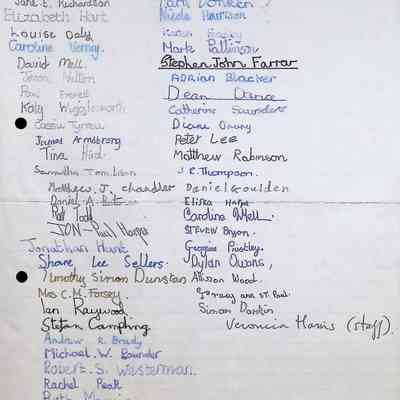 Jane E. Richardson
Elizabeth Hart
Louise Daly
Caroline Verney.
David Mell.
Jason Nutton
Paul Everell
Katy Wigglesworth
Cassie Tyrrell
James Armstrong
Tina Hird
Samantha Tomlinson
Matthew. J. chandler
Daniel A.
Pat Todd
JON-Paul Harpa
Jonathan Hunt
Shane Lee Sellers.
Timothy Simon Dunston
Mrs C.M. Forsey.
Ian Raywood
Stefan Camphing
Andrew R. Brady
Michael. W. Bounder
Robert. S. Westerman.
Rachel Peak
Ruth
Nicola Harrison
Mark Pallinson
Stephen John Farrar
ADRIAN Blacker
Dean Dance
Catherine Saunders
Diane Drury
Peter Lee
Matthew Robinson
J.R. Thompson.
Daniel Goulden
Eliska Harpa
Caroline Mell.
STEVEN Bryon.
Georgina Priestley.
Dylan Owens,
Allison Wood.
Tracy and St. Paul.
Simon Dankin
Veronica Harris (staff).